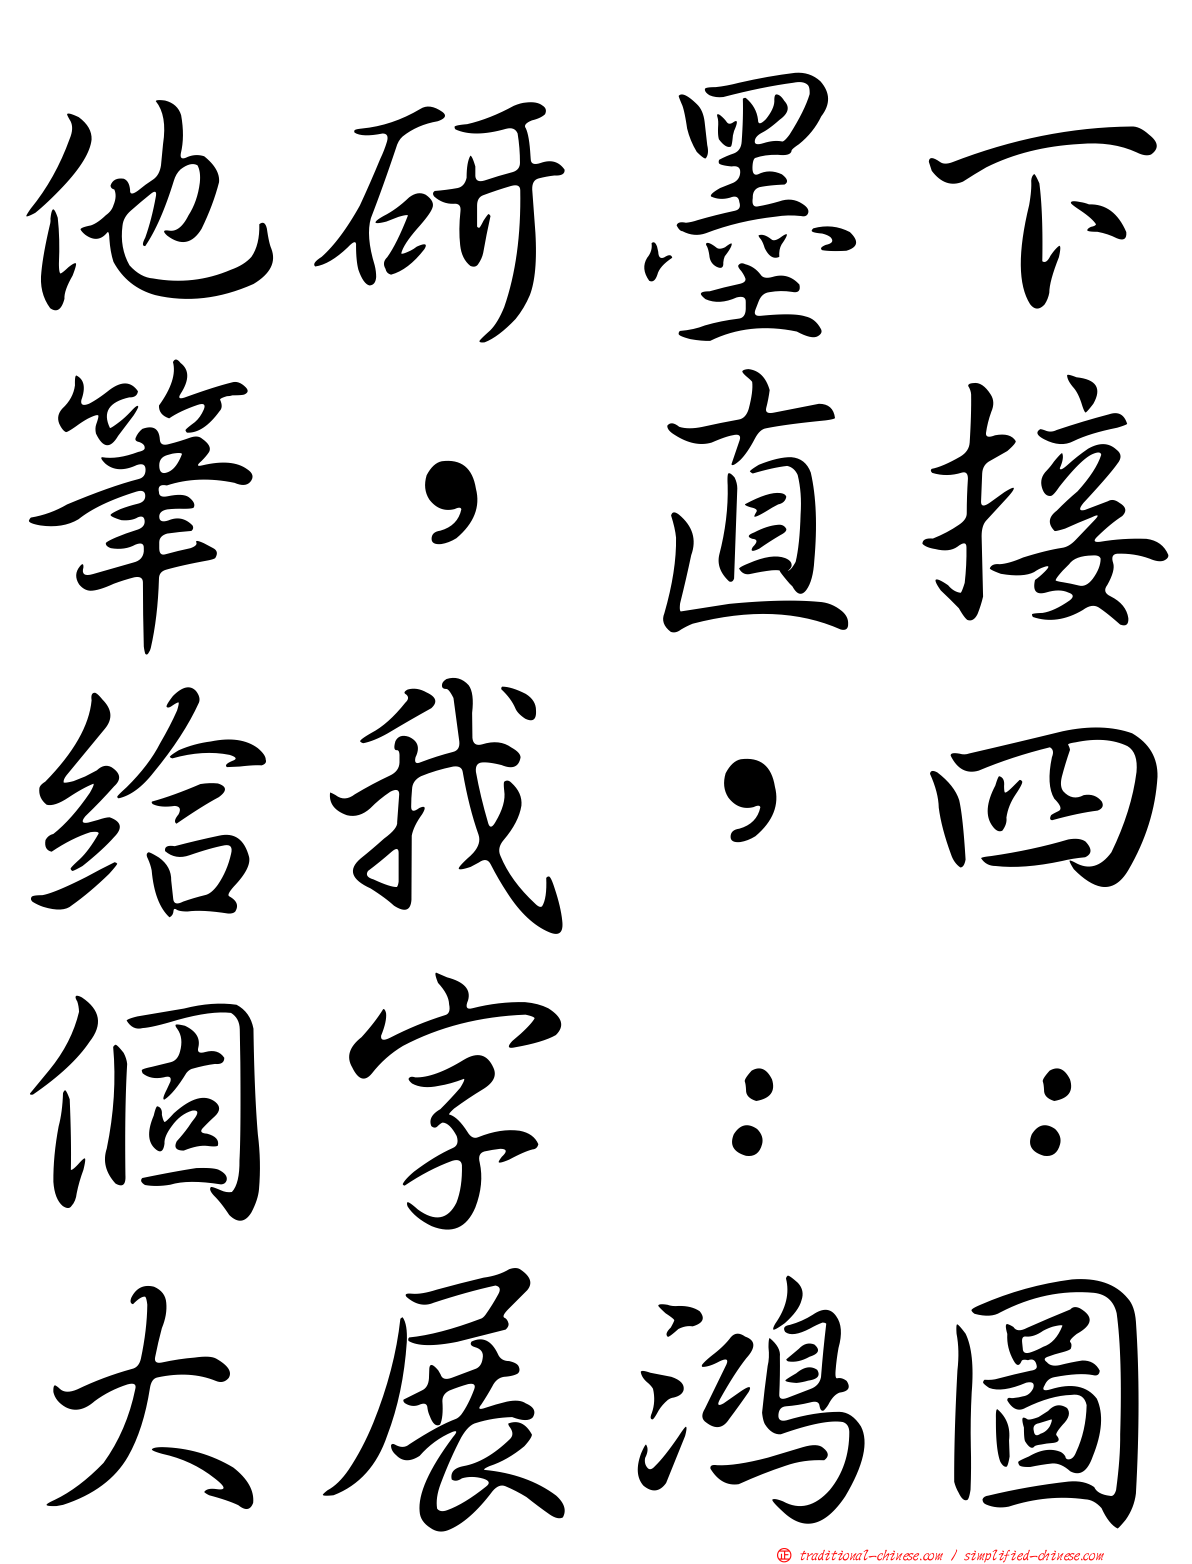 他研墨下
筆，直接
給我，四
個字：：
大展鴻圖
正 traditional-chinese.com / simplified-chinese.com